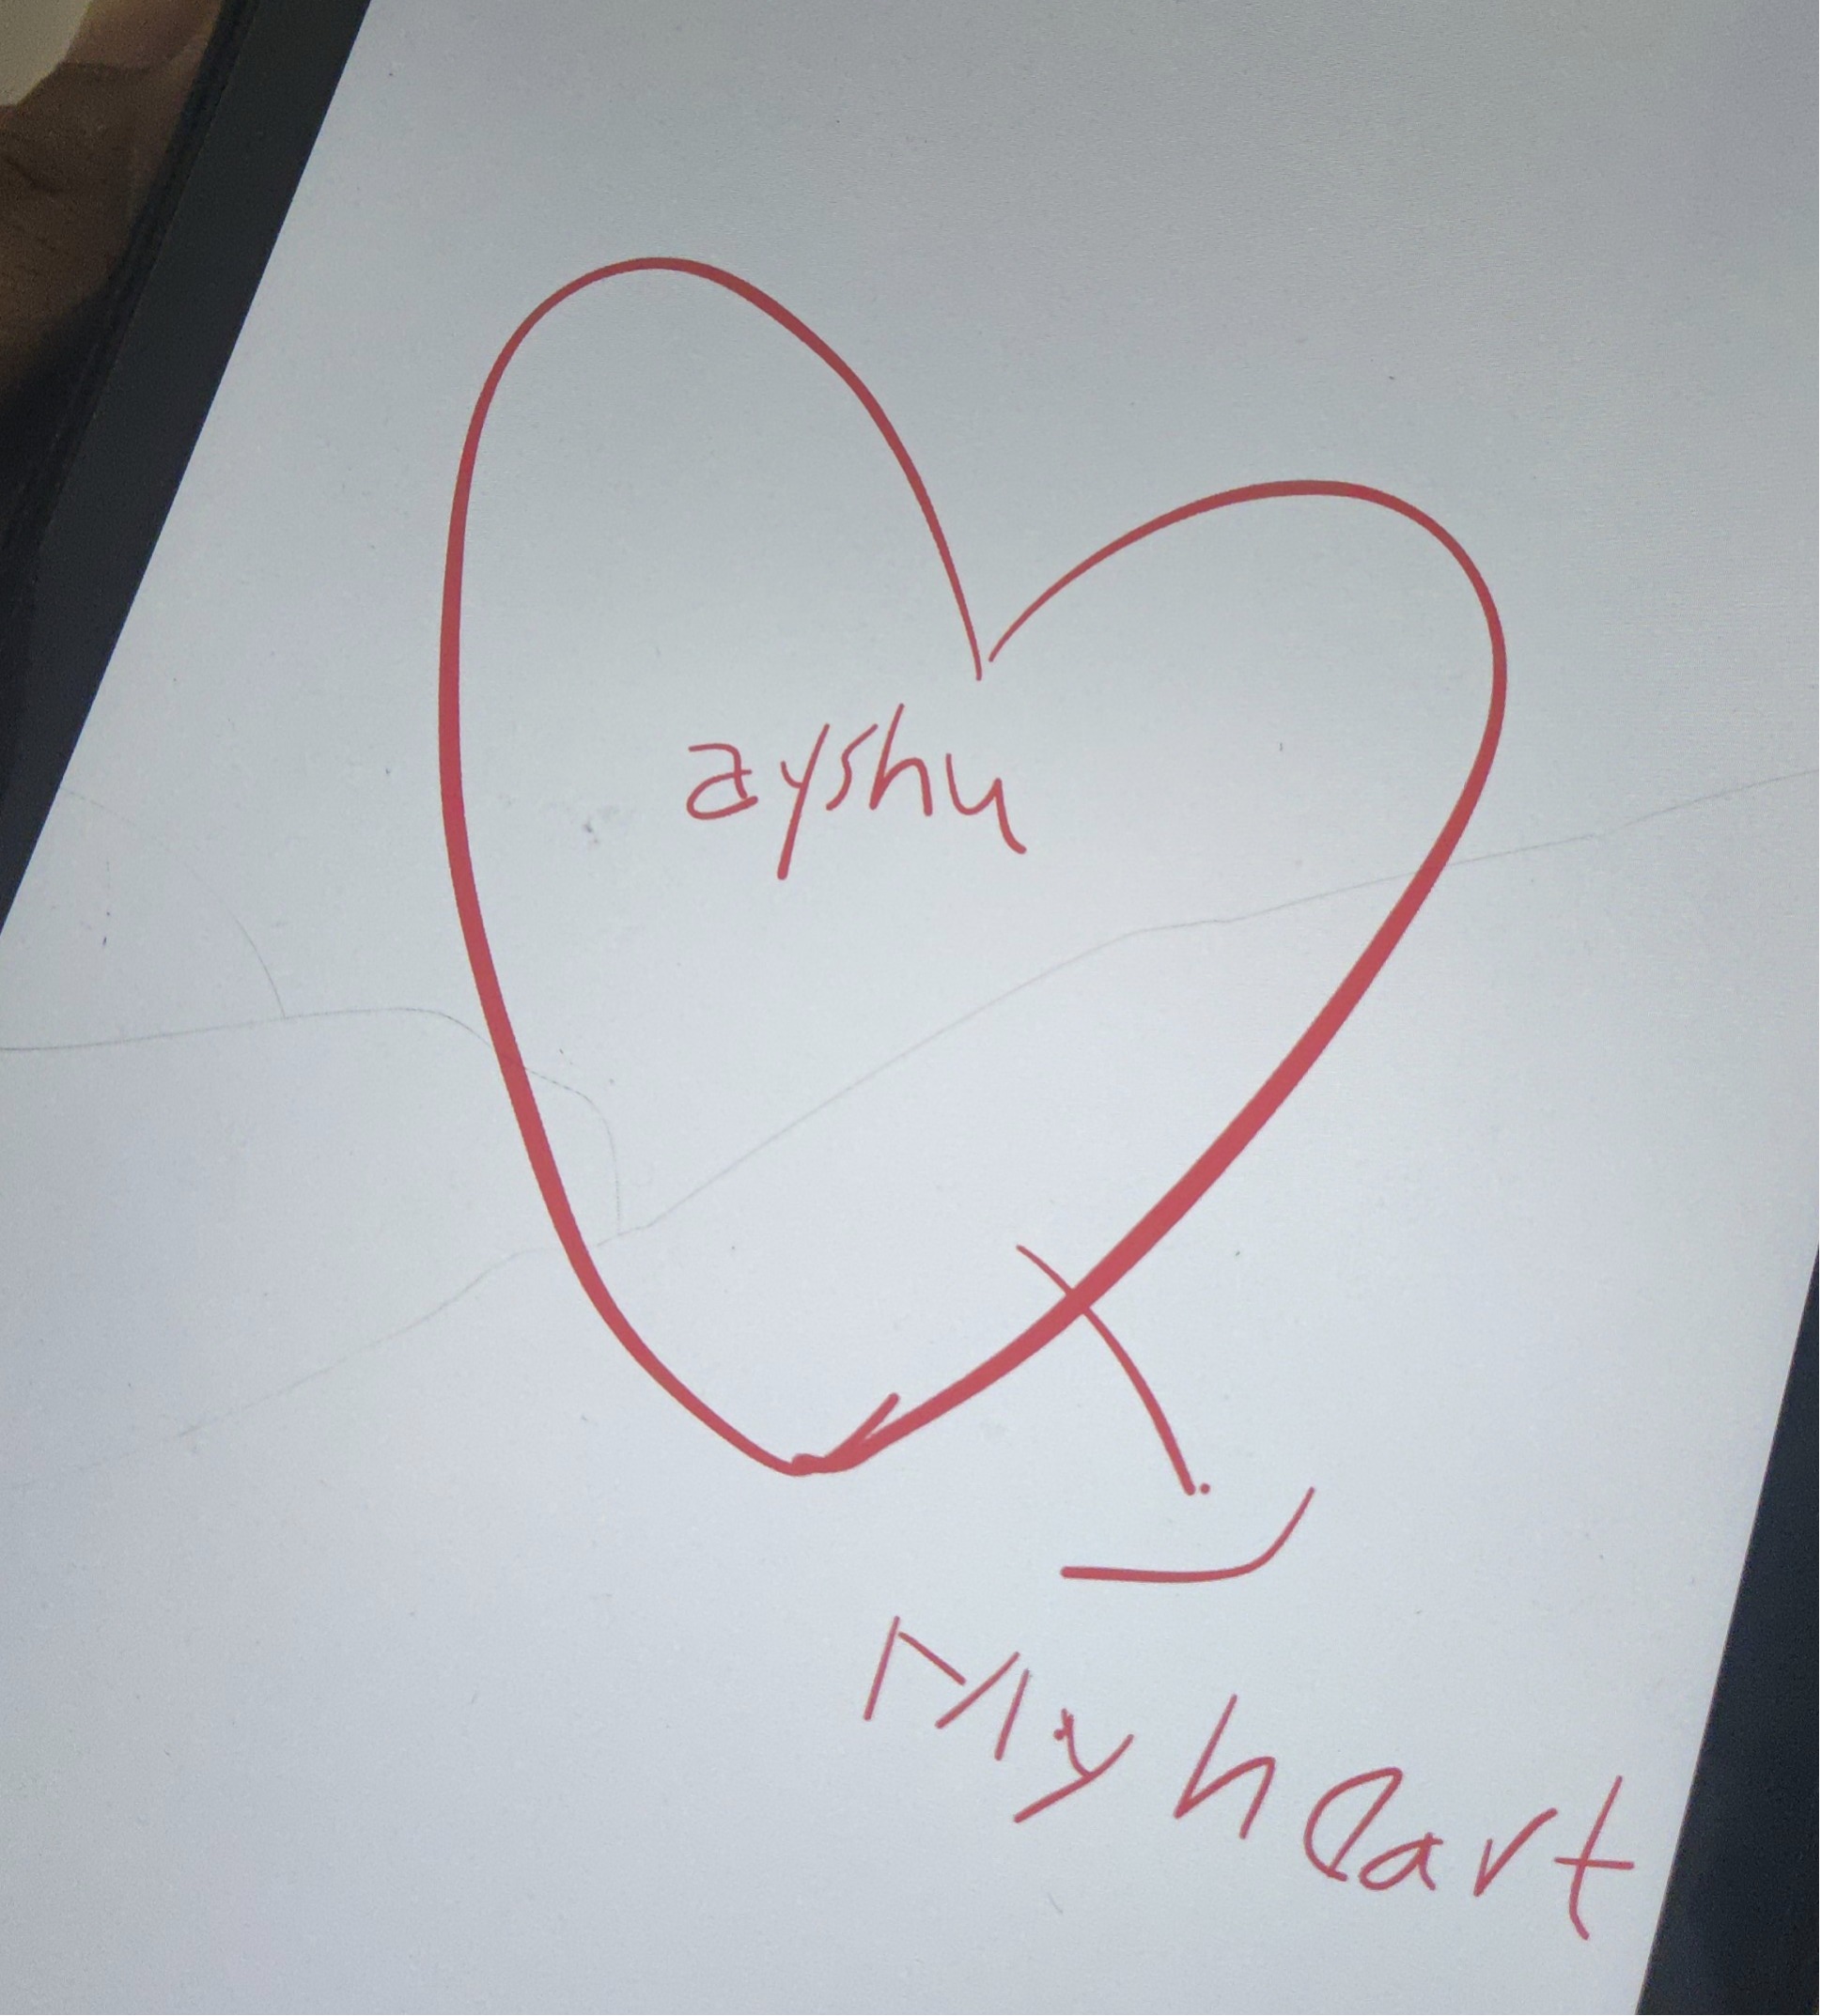 ayshu
My heart